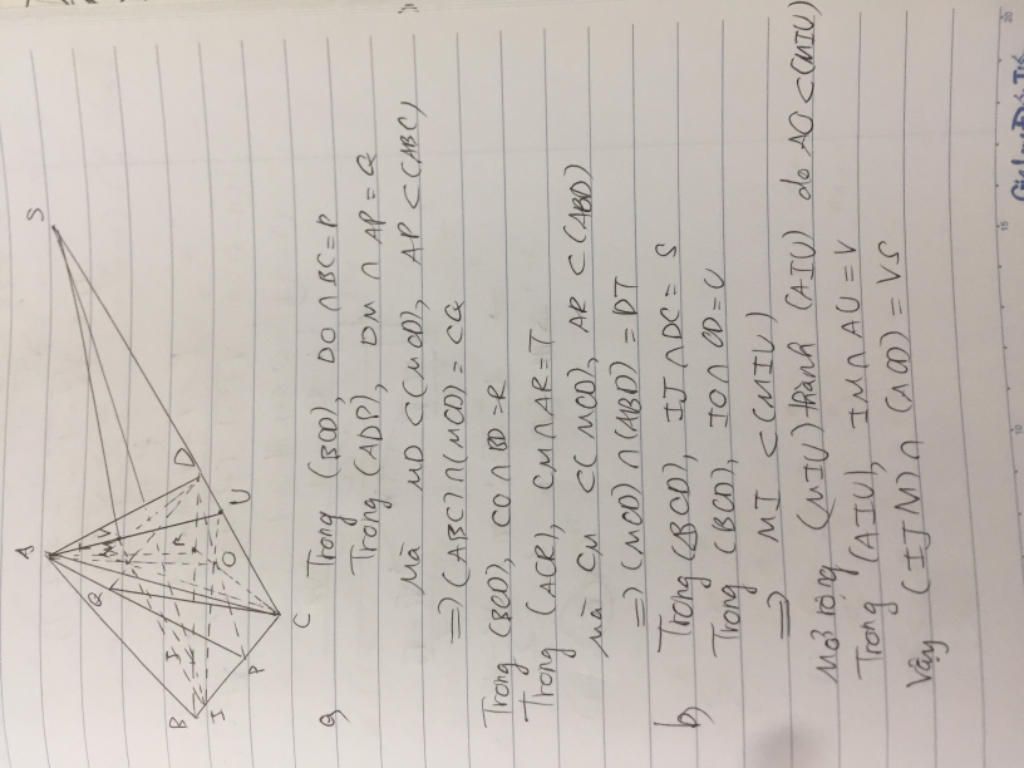 A
S
Q
M
B
J
R
D
I
O
U
P
C
a, Trong (BCD), DO ∩ BC = P
Trong (ADP), DM ∩ AP = Q
Mà MD ⊂ (MOD), AP ⊂ (ABC)
=> (ABC) ∩ (MCD) = CQ
Trong (BCD), CO ∩ BD = R
Trong (ACR), CM ∩ AR = T
Mà CM ⊂ (MCD), AR ⊂ (ABD)
=> (MCD) ∩ (ABD) = DT
b, Trong (BCD), IJ ∩ DC = S
Trong (BCD), IO ∩ CD = U
=> MI ⊂ (MIU)
Mở rộng (MIU) thành (AIU) do AO ⊂ (MIU)
Trong (AIU), IM ∩ AU = V
Vậy (IJM) ∩ (ACD) = VS
10
15
20